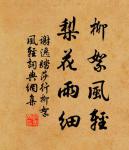 柳絮風輕
梨花雨細
謝逸踏莎行柳絮
風輕詞典網集